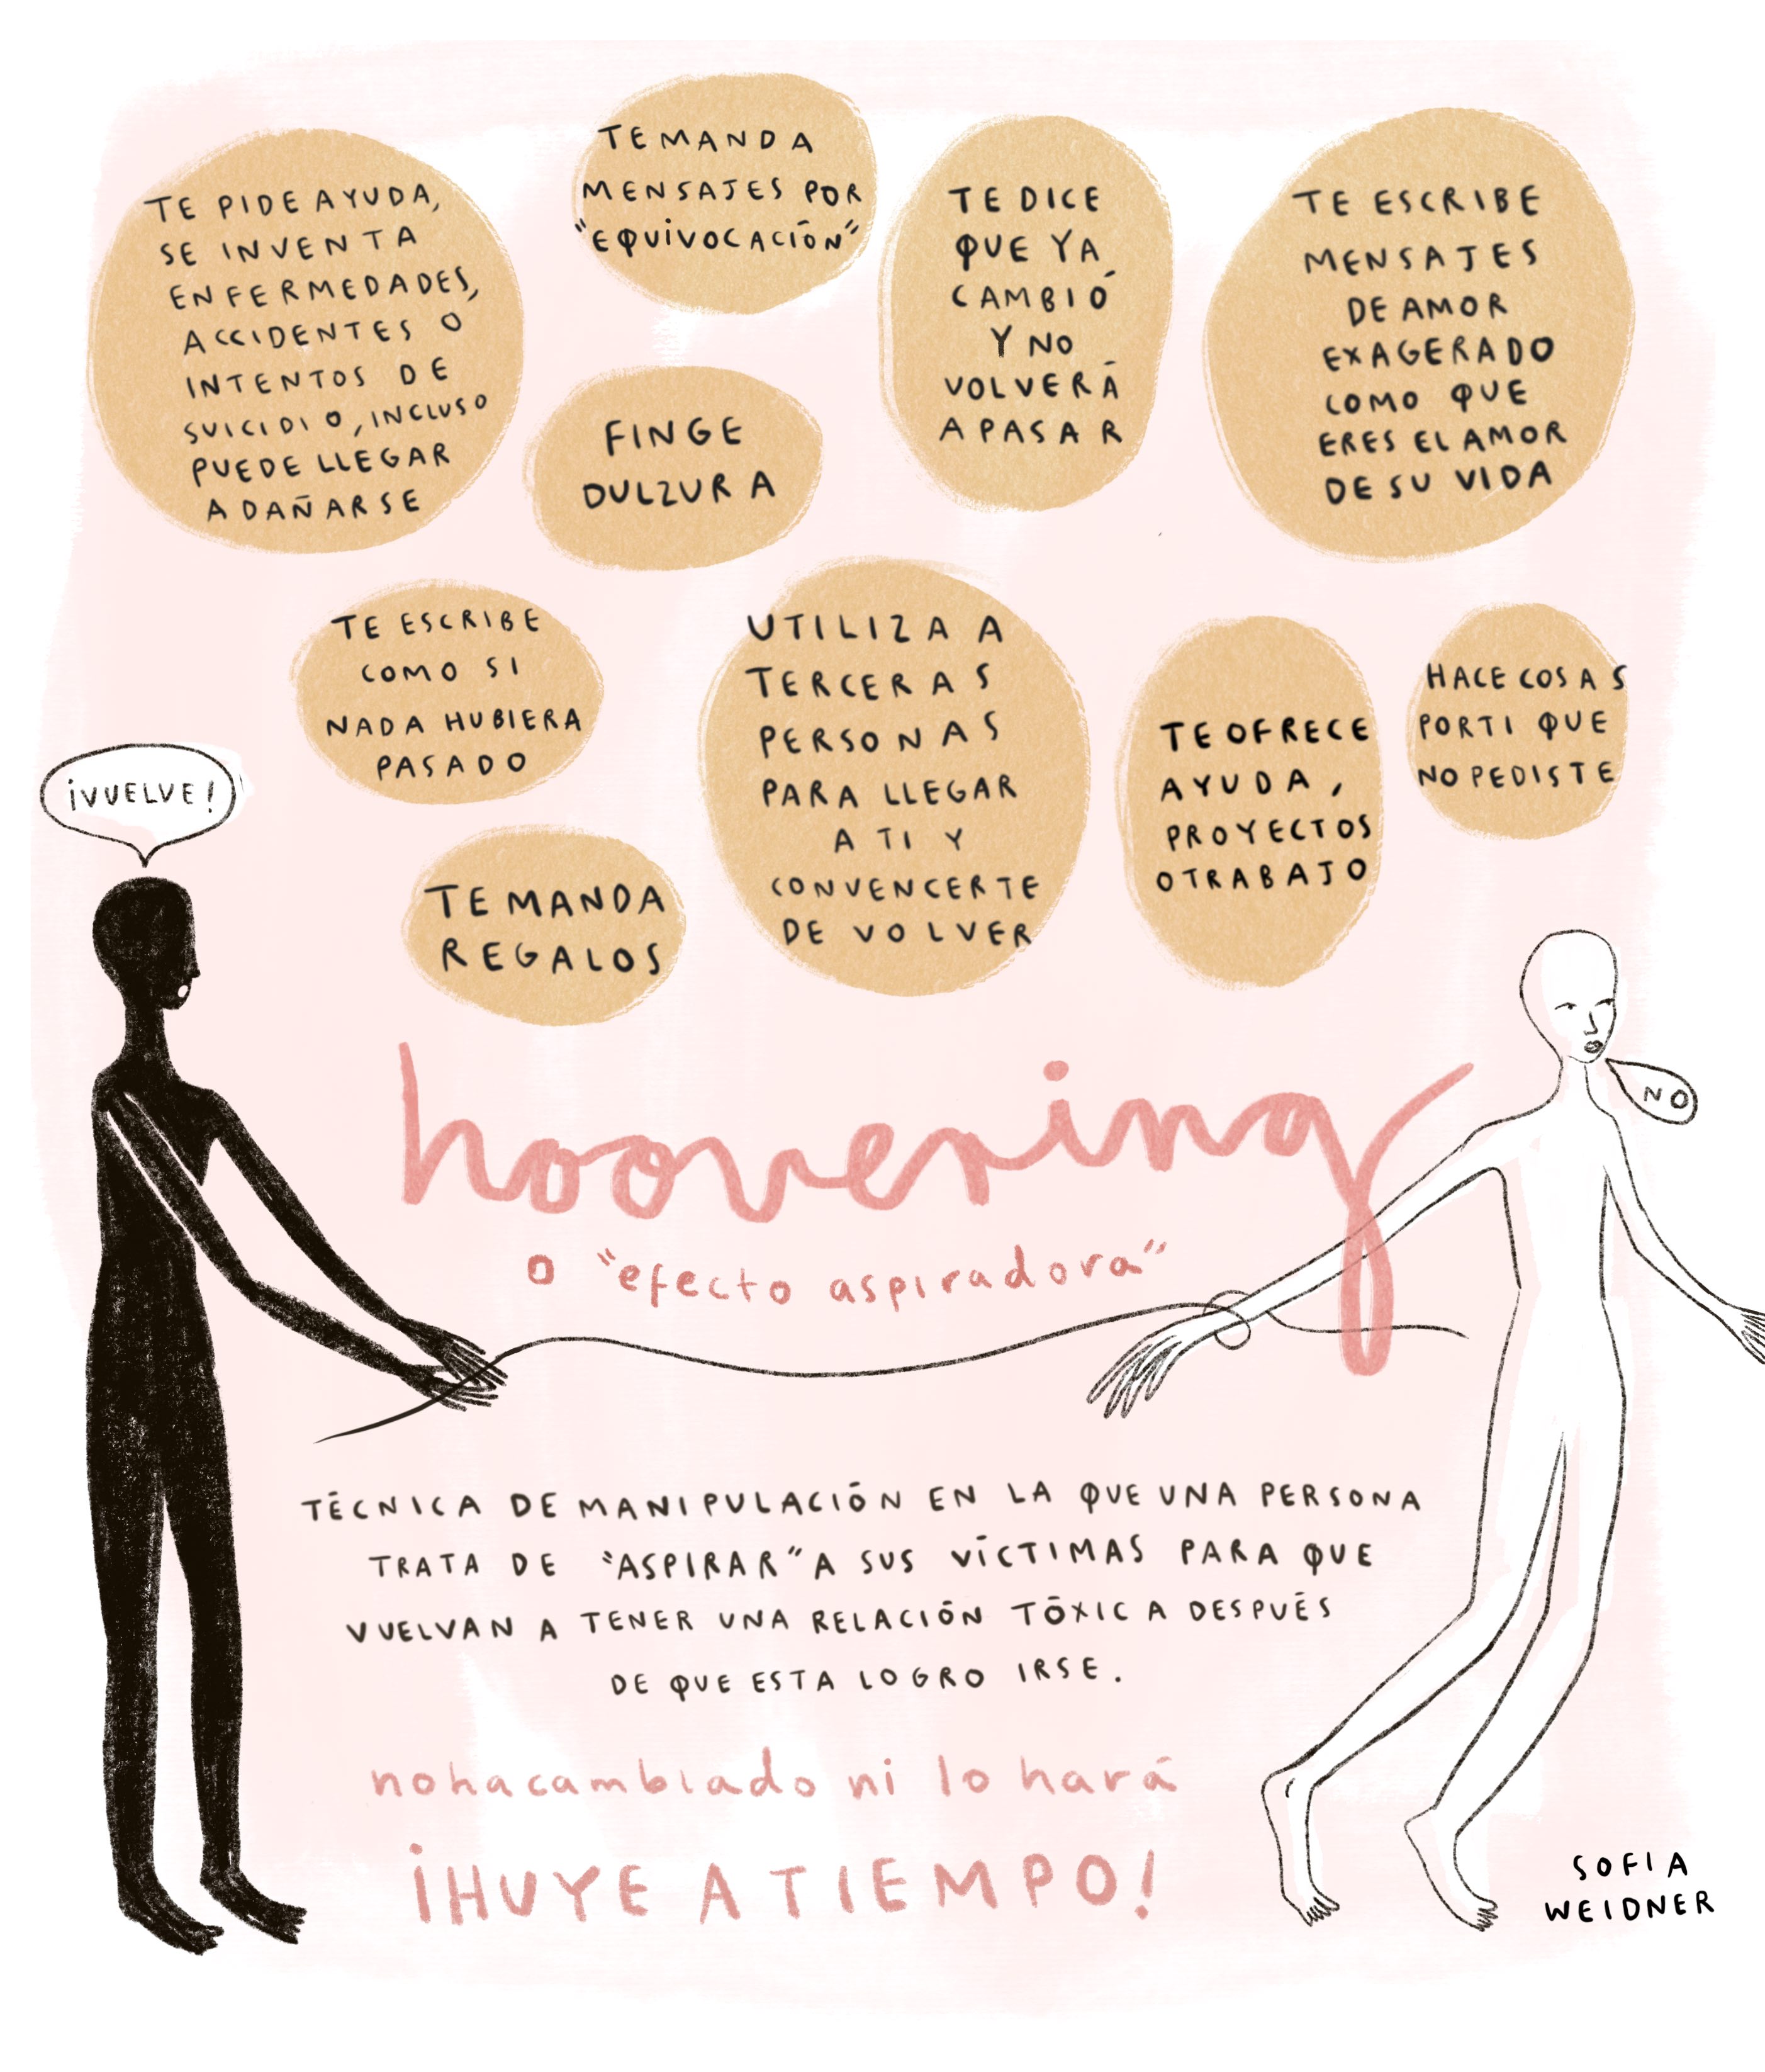 TE PIDE AYUDA,
SE INVENTA
ENFERMEDADES,
ACCIDENTES O
INTENTOS DE
SUICIDIO, INCLUSO
PUEDE LLEGAR
A DAÑARSE
TE MANDA
MENSAJES POR
"EQUIVOCACIÓN"
TE DICE
QUE YA
CAMBIÓ
Y NO
VOLVERÁ
A PASAR
TE ESCRIBE
MENSAJES
DE AMOR
EXAGERADO
COMO QUE
ERES EL AMOR
DE SU VIDA
FINGE
DULZURA
TE ESCRIBE
COMO SI
NADA HUBIERA
PASADO
UTILIZA A
TERCERAS
PERSONAS
PARA LLEGAR
A TI Y
CONVENCERTE
DE VOLVER
TE OFRECE
AYUDA,
PROYECTOS
O TRABAJO
HACE COSAS
POR TI QUE
NO PEDISTE
¡VUELVE!
TE MANDA
REGALOS
NO
hoovering
o "efecto aspiradora"
TÉCNICA DE MANIPULACIÓN EN LA QUE UNA PERSONA
TRATA DE "ASPIRAR" A SUS VÍCTIMAS PARA QUE
VUELVAN A TENER UNA RELACIÓN TÓXICA DESPUÉS
DE QUE ESTA LOGRO IRSE.
no ha cambiado ni lo hará
¡HUYE A TIEMPO!
SOFIA
WEIDNER